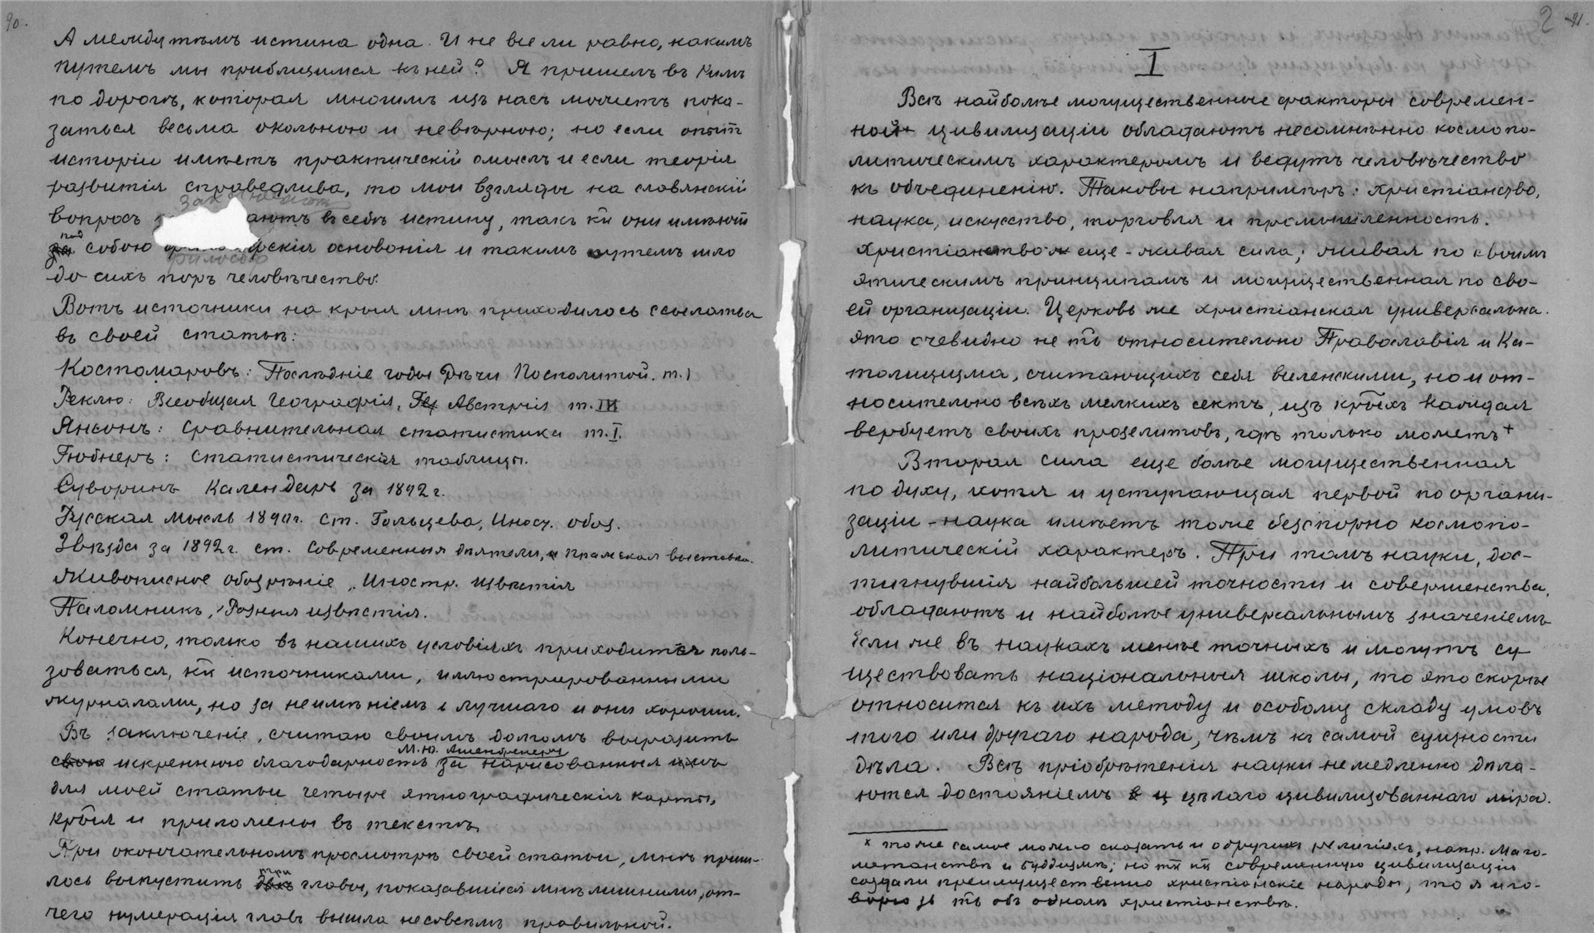 90.
А между тѣмъ истина одна. И не все ли равно, какимъ
путемъ мы приблизимся къ ней? Я пришелъ въ нимъ
по дорогѣ, которая многимъ изъ насъ можетъ пока-
заться весьма окольною и невѣрною; но если опытъ
исторіи имѣетъ практическій смыслъ и если теорія
развитія справедлива, то мои взгляды на славянскій
вопросъ заключаютъ въ себѣ истину, такъ кк они имѣютъ
подъ собою философскія основанія и такимъ путемъ шло
до сихъ поръ человѣчество.
Вотъ источники на крыя мнѣ приходилось ссылаться
въ своей статьѣ:
Костомаровъ: Послѣдніе годы Рѣчи Посполитой. т. 1
Реклю: Всеобщая Географія, Австрія т. III
Янсонъ: Сравнительная статистика т. I.
Гюбнеръ: Статистическія таблицы.
Суворинъ Календарь за 1892 г.
Русская Мысль 189 г. ст. Гольцева, Иност. обоз.
Звѣзда за 1892 г. ст. Современныя дѣятели, и пражская выставка.
Живописное обозрѣніе, Иностр. Извѣстія
Паломникъ, Разныя извѣстія.
Конечно, только въ нашихъ условіяхъ приходится поль-
зоваться, кк источниками, иллюстрированными
журналами, но за неимѣніемъ лучшаго и они хороши.
Въ заключеніе, считаю своимъ долгомъ выразить
М. Ю.
свою искреннюю благодарность за нарисованныя имъ
для моей статьи четыре этнографическія карты,
крыя и приложены въ текстѣ.
При окончательномъ просмотрѣ своей статьи, мнѣ приш-
три
лось выпустить двѣ главы, показавшіяся мнѣ лишними, от-
чего нумерація главъ вышла несовсѣмъ правильной.
2
91.
I
Всѣ наиболѣе могущественные факторы современ-
ной цивилизаціи обладаютъ несомнѣнно космопо-
литическимъ характеромъ и ведутъ человѣчество
къ объединенію. Таковы напримѣръ: христіанство,
наука, искусство, торговля и промышленность.
Христіанство еще - живая сила; живая по своимъ
этическимъ принципамъ и могущественная по сво-
ей организаціи. Церковь же христіанская универсальна.
Это очевидно не тк относительно Православія и Ка-
толицизма, считающихъ себя вселенскими, но и от-
носительно всѣхъ мелкихъ сектъ, изъ крыхъ каждая
вербуетъ своихъ прозелитовъ, гдѣ только можетъ+
Вторая сила еще болѣе могущественная
по духу, хотя и уступающая первой по органи-
заціи - наука имѣетъ тоже безспорно космопо-
литическій характеръ. При томъ науки, дос-
тигнувшія наибольшей точности и совершенства,
обладаютъ и наиболѣе универсальнымъ значеніемъ.
Если же въ наукахъ менѣе точныхъ и могутъ су
ществовать національныя школы, то это скорѣе
относится къ ихъ методу и особому складу умовъ
того или другаго народа, чѣмъ къ самой сущности
дѣла. Всѣ пріобрѣтенія науки немедленно дѣла-
ются достояніемъ цѣлаго цивилизованнаго міра.
× тоже самое можно сказать и о другихъ религіяхъ, напр. Маго-
метанствѣ и Буддизмѣ; но тк кк современную цивилизацію
создали преимущественно христіанскіе народы, то я и го-
ворю зд тк объ одномъ христіанствѣ.